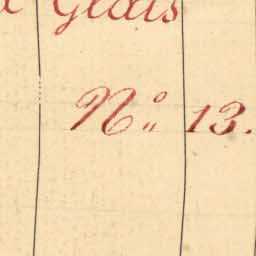 Glais
Nº 13.